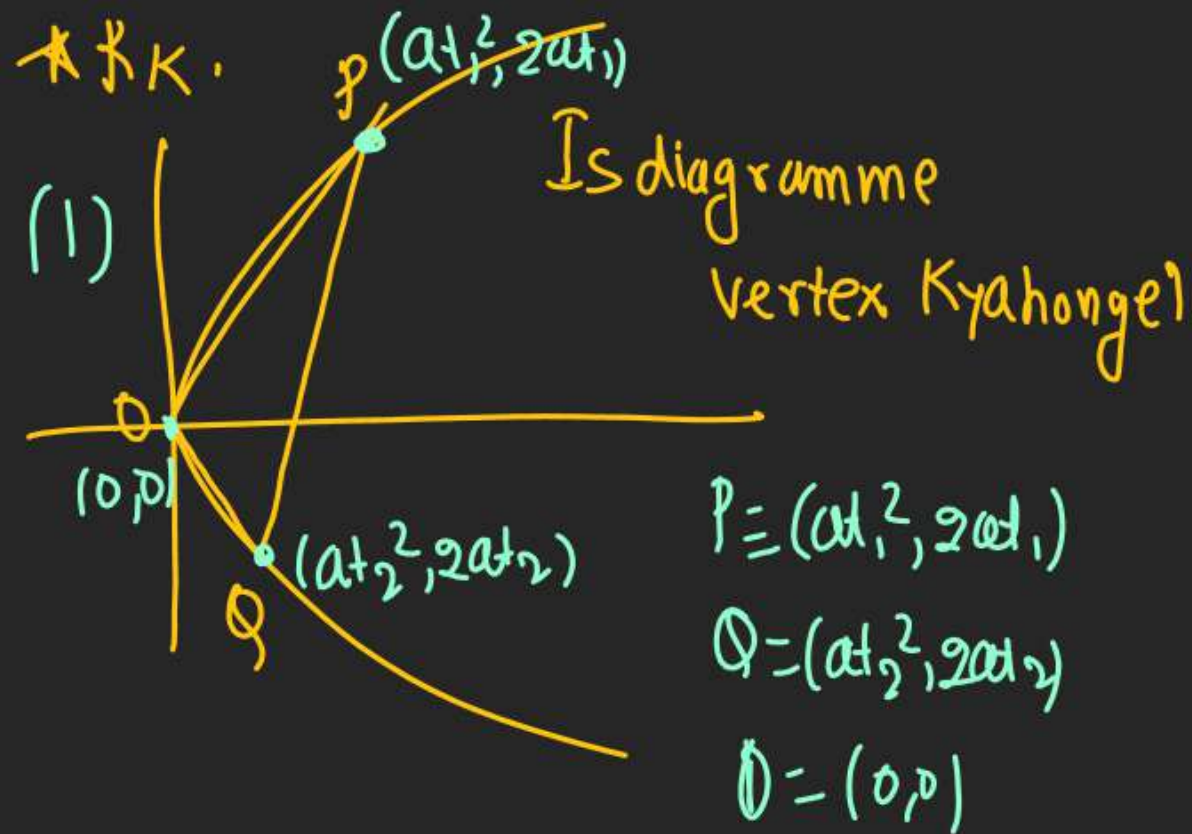 ★ RK.
P (at₁², 2at₁)
(1)
Is diagramme
vertex Kya honge
O
(0,0)
(at₂², 2at₂)
Q
P ≡ (at₁², 2at₁)
Q = (at₂², 2at₂)
O = (0,0)